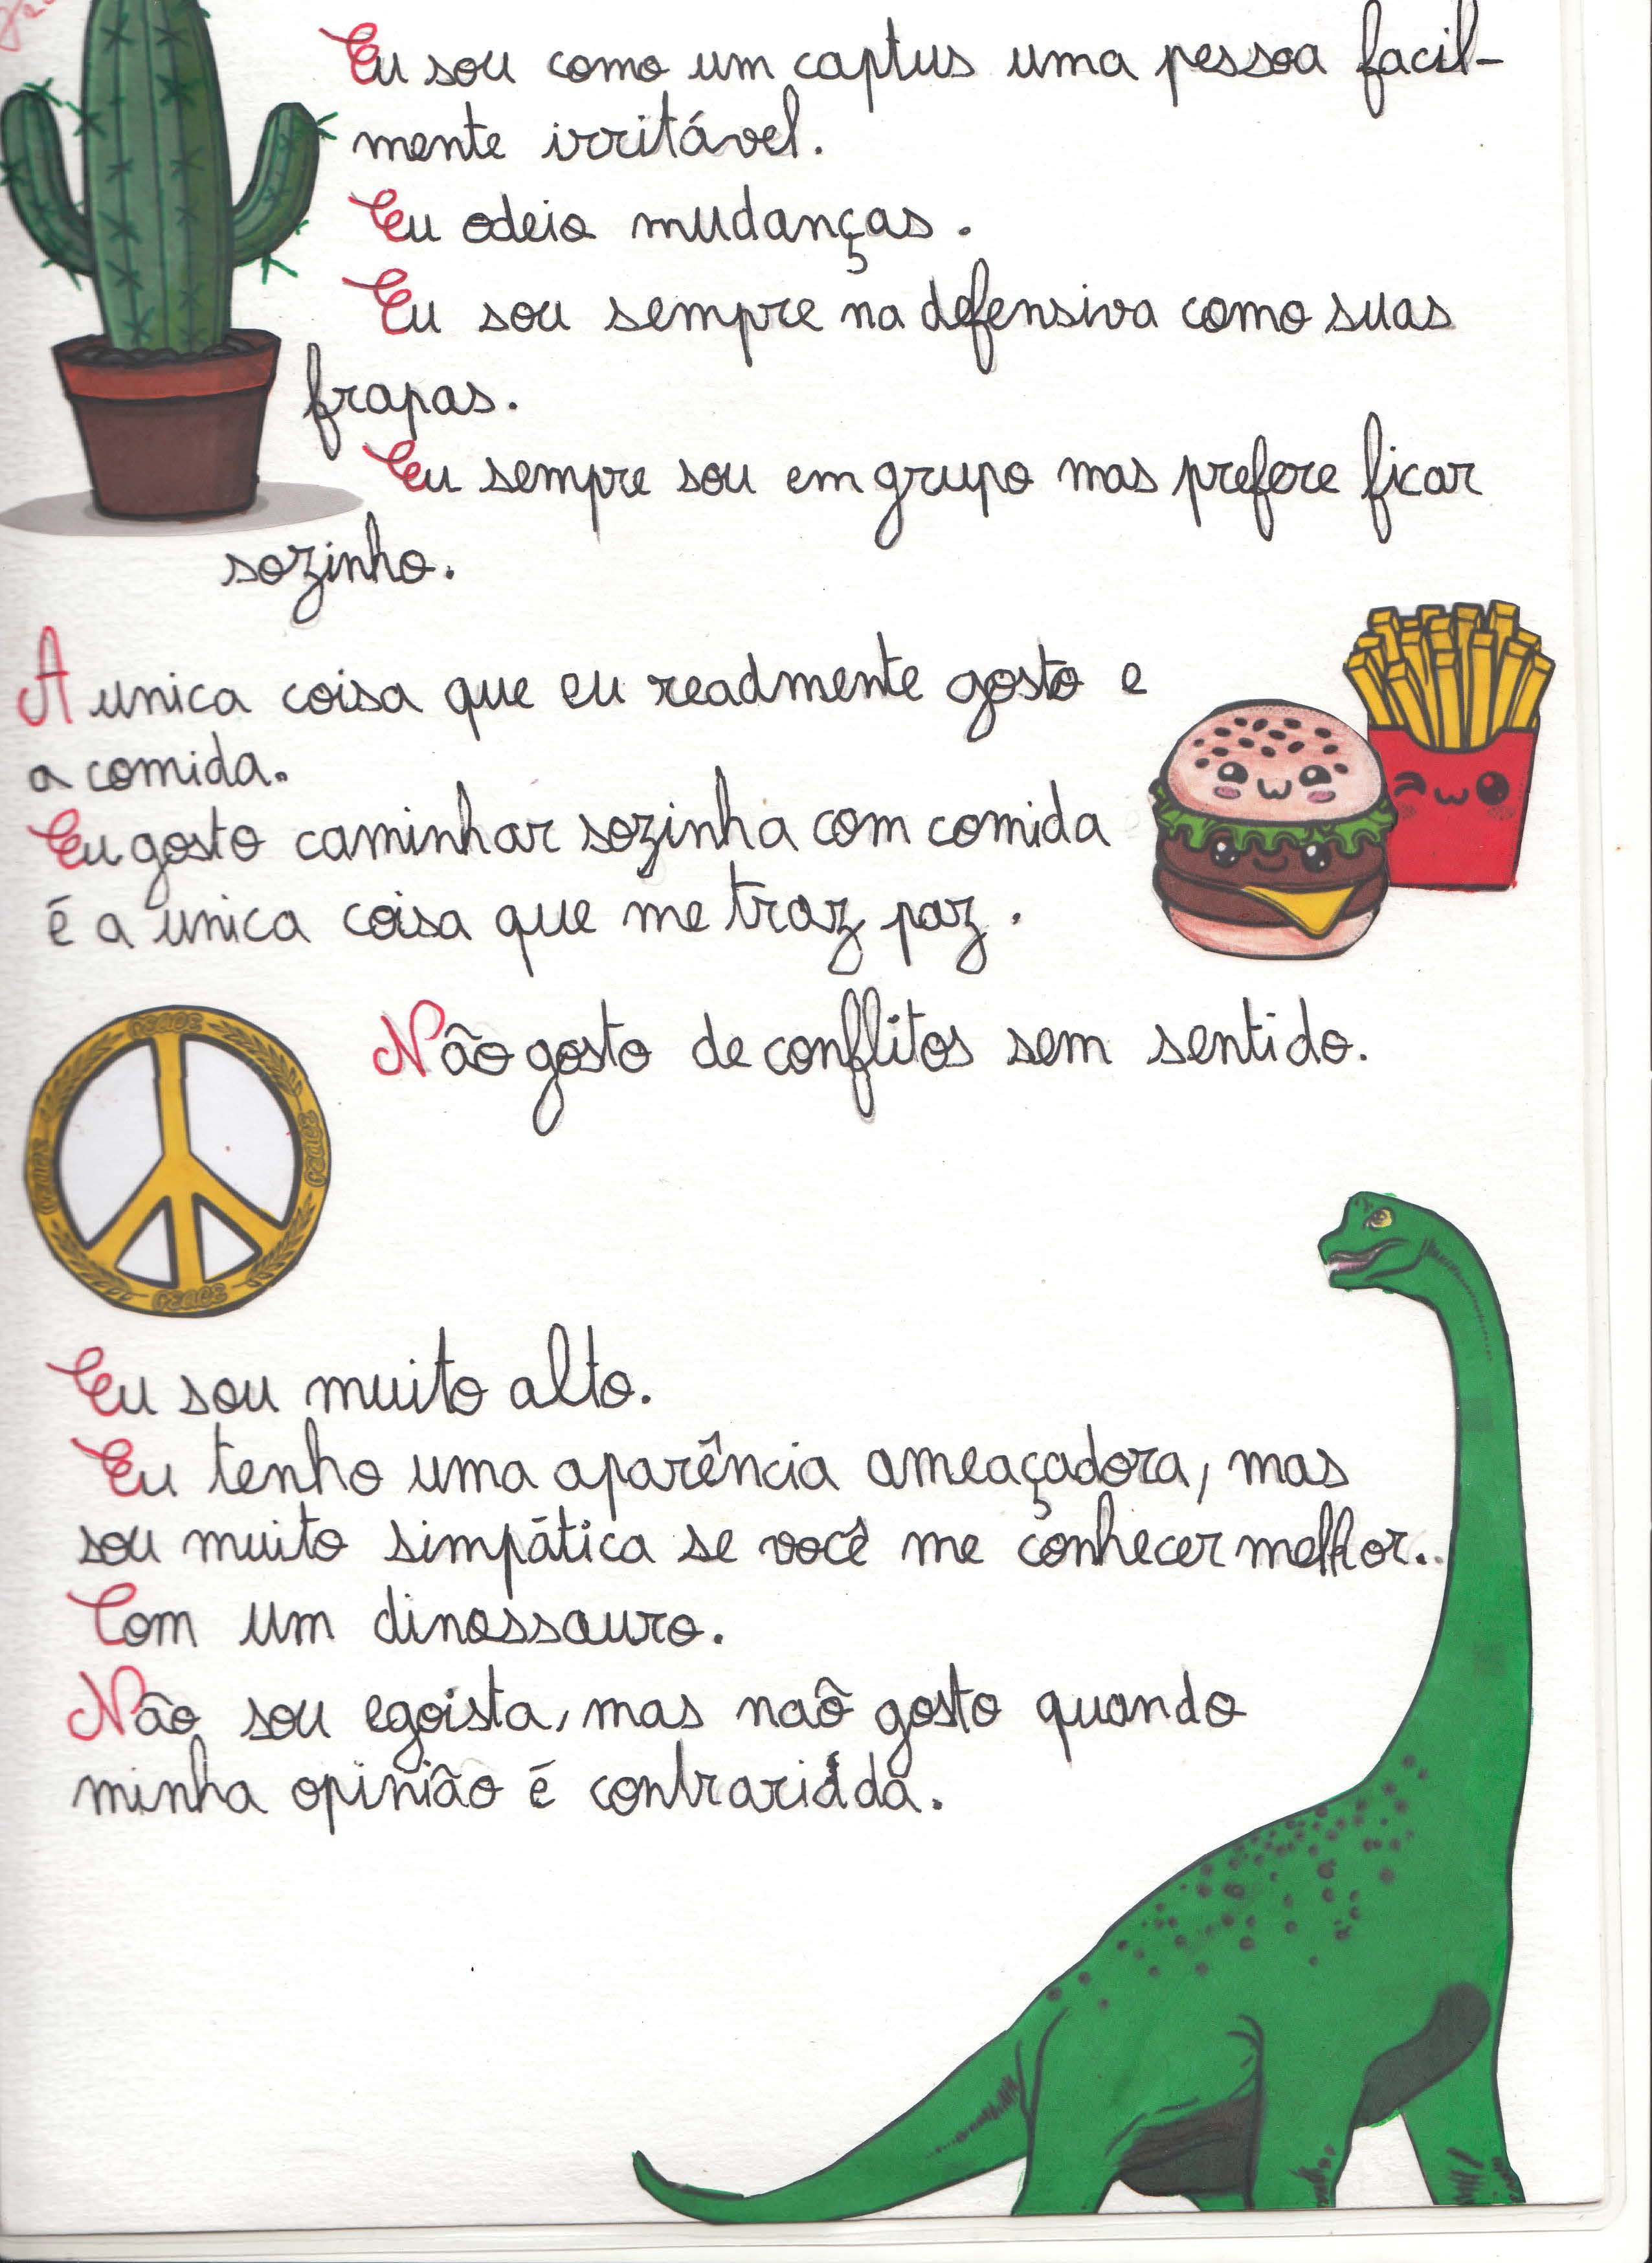 Eu sou como um captus uma pessoa facil-
mente irritável.
Eu odeio mudanças.
Eu sou sempre na defensiva como suas
frapas.
Eu sempre sou em grupo mas prefere ficar
sozinho.
A unica coisa que eu readmente gosto e
a comida.
Eu gosto caminhar sozinha com comida
é a unica coisa que me traz paz.
Não gosto de conflitos sem sentido.
PEACE
PEACE
PEACE
PEACE
Eu sou muito alto.
Eu tenho uma aparência ameaçadora, mas
sou muito simpática se você me conhecer melhor..
Com um dinossauro.
Não sou egoista, mas naõ gosto quando
minha opinião é contrariada.